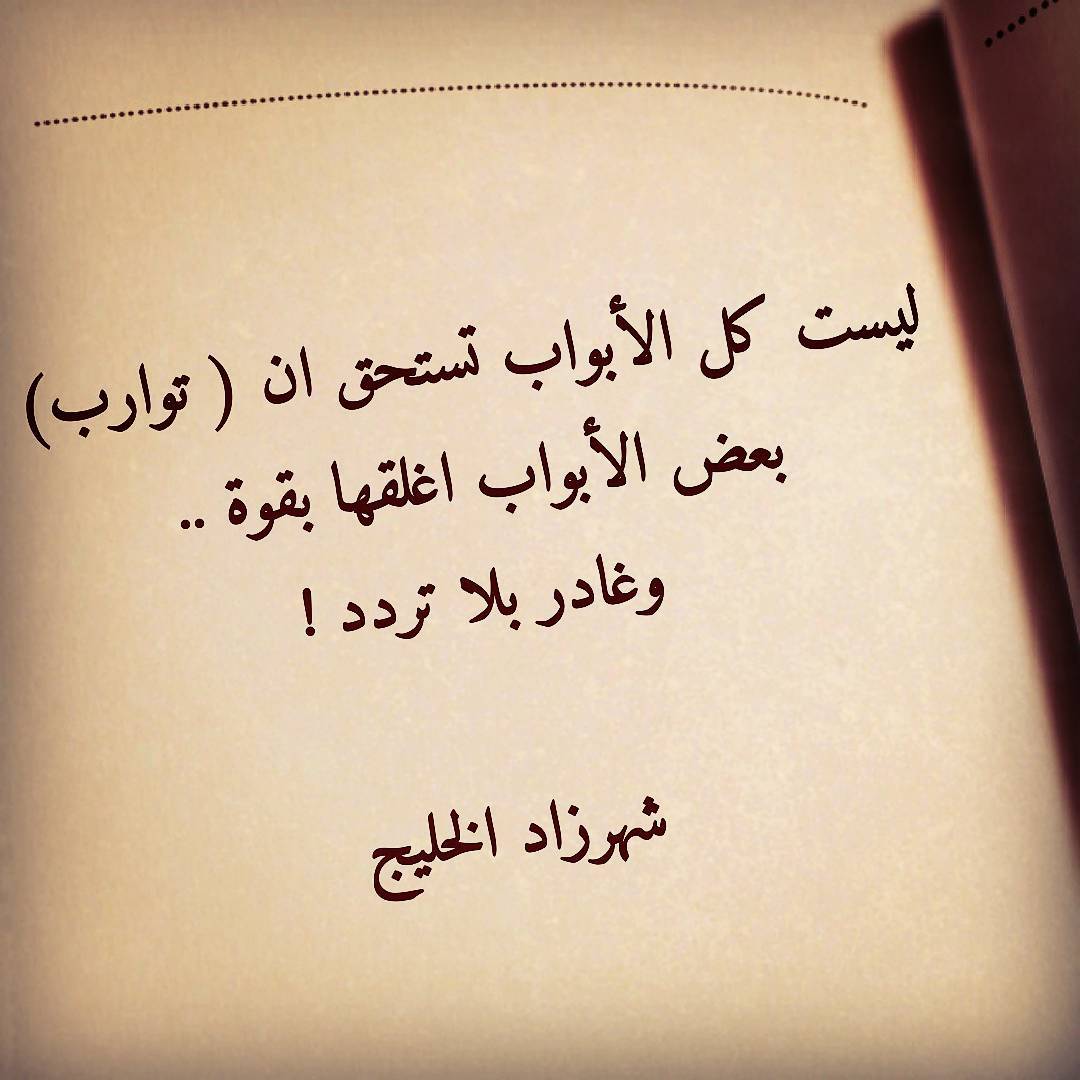 ليست كل الأبواب تستحق ان ( توارب)
بعض الأبواب اغلقها بقوة ..
وغادر بلا تردد !
شهرزاد الخليج